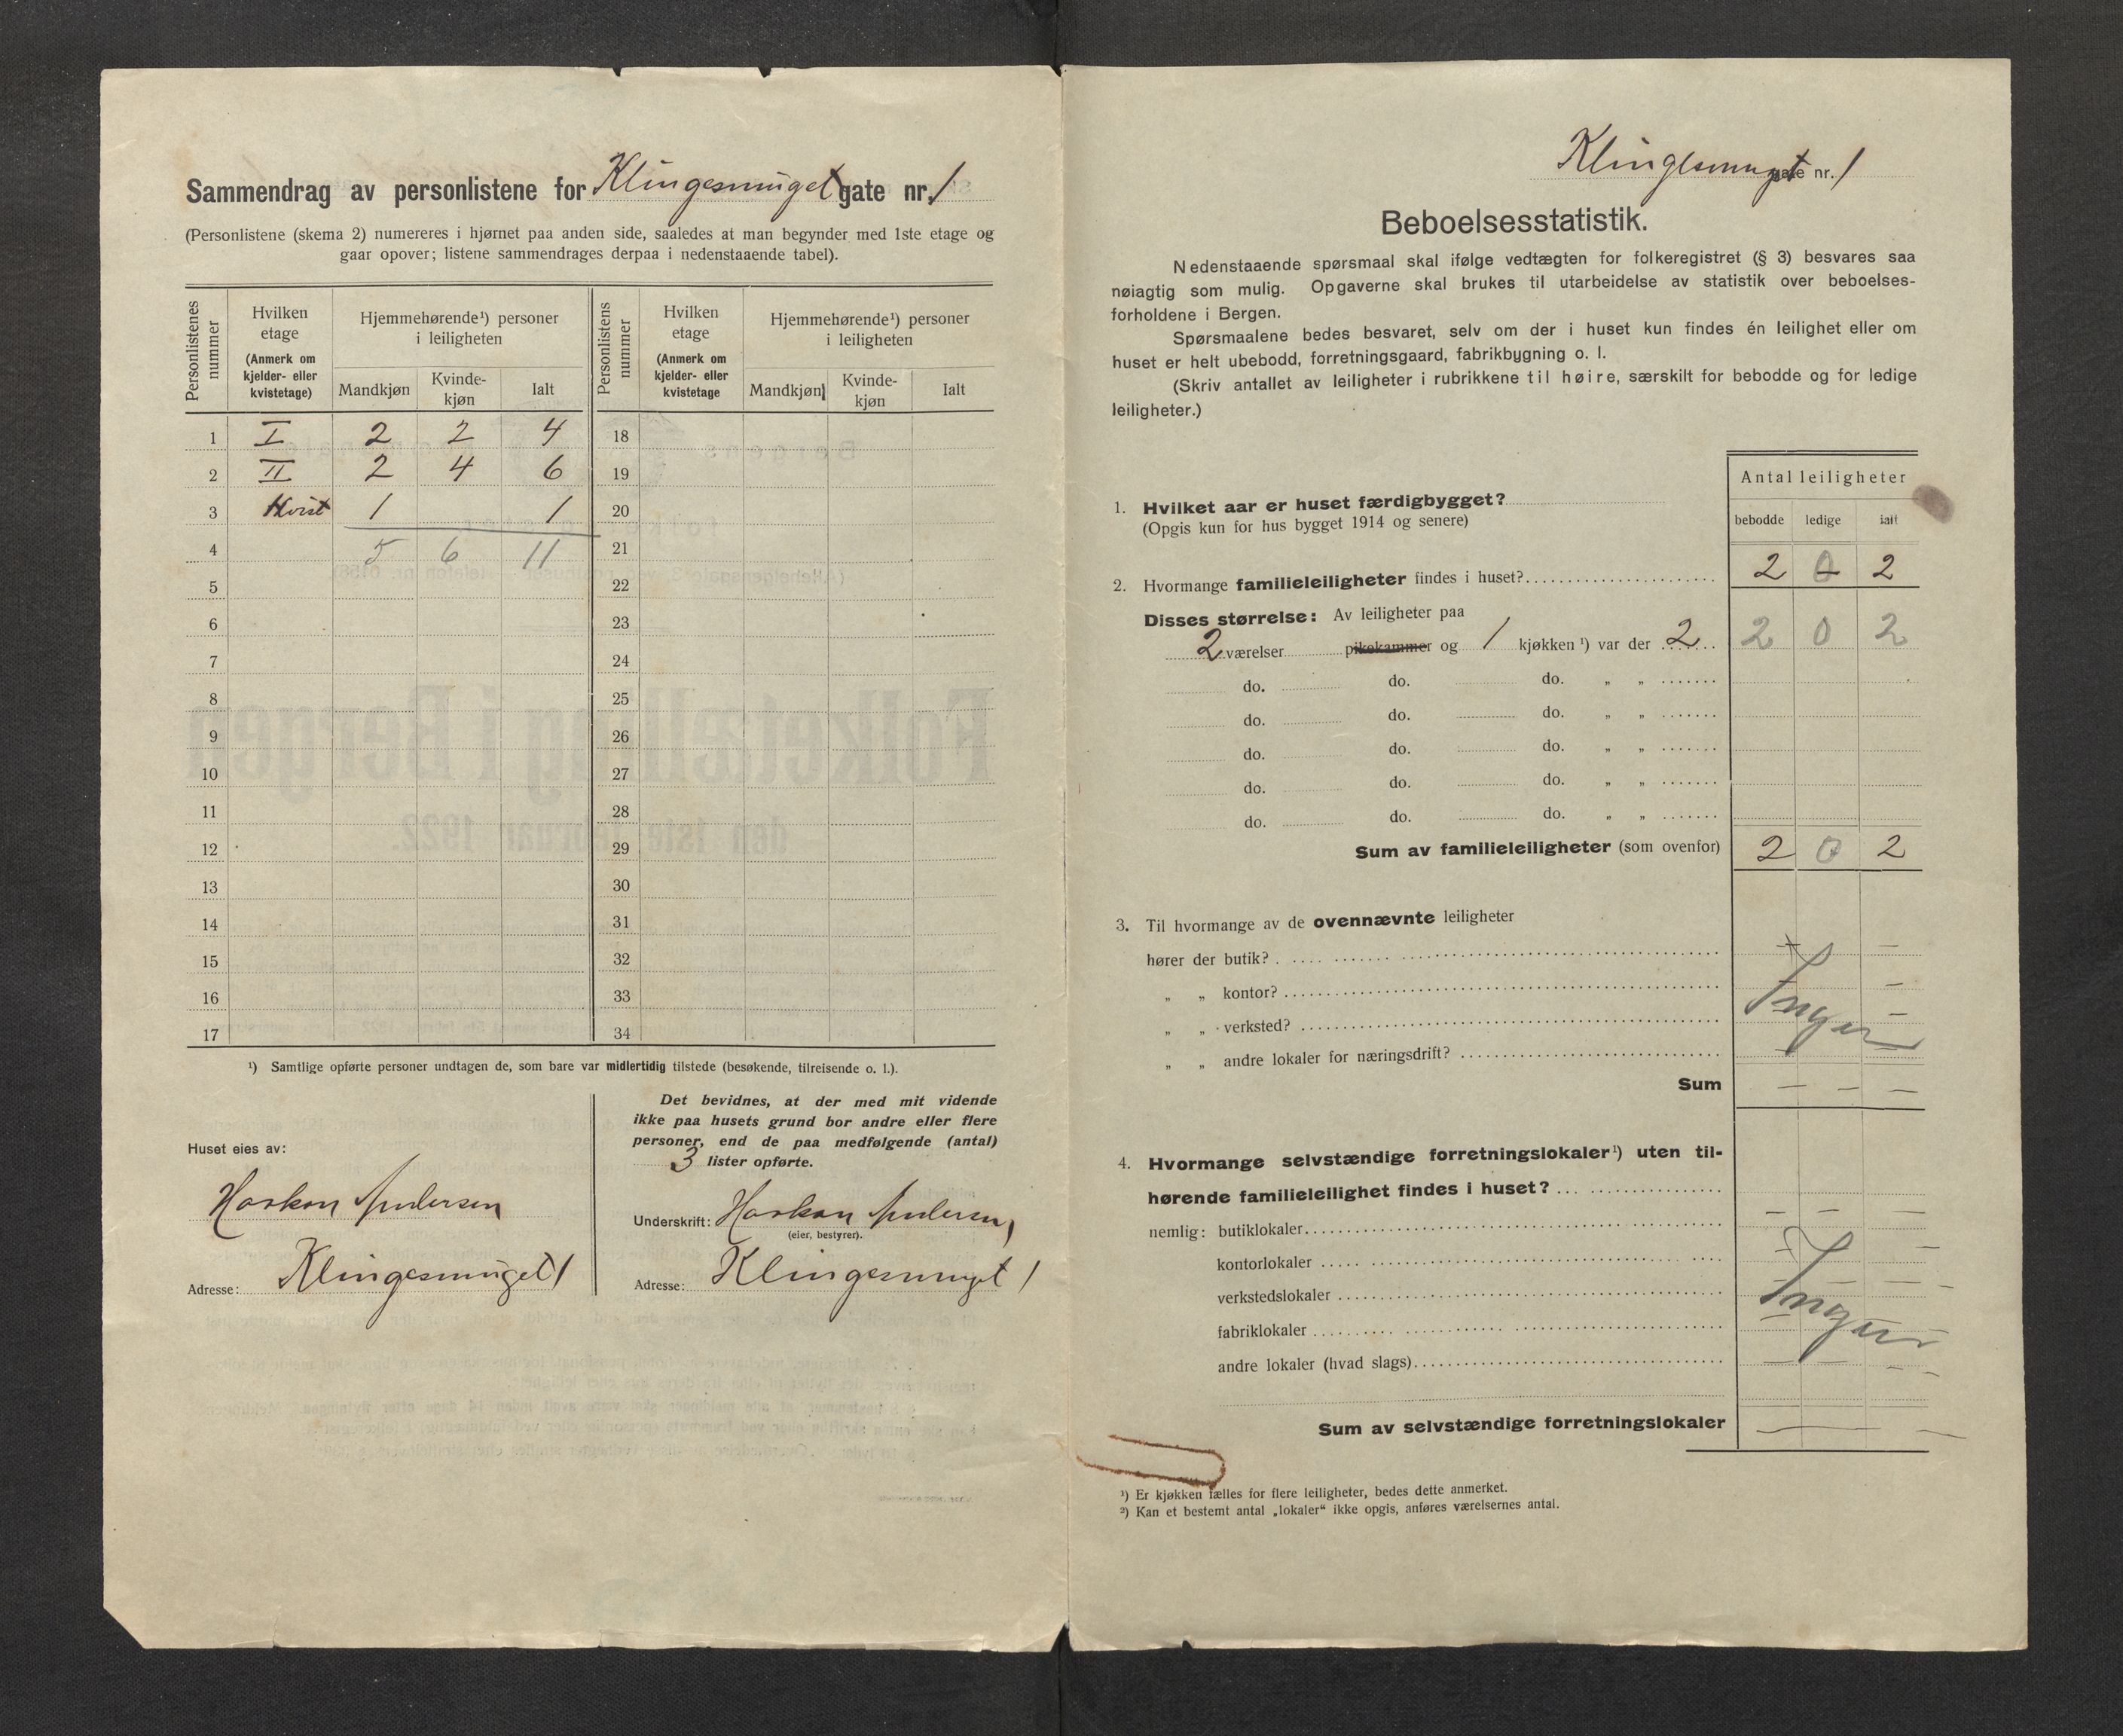 Sammendrag av personlistene for Klingesmuget gate nr. 1
(Personlistene (skema 2) numereres i hjørnet paa anden side, saaledes at man begynder med 1ste etage og
gaar opover; listene sammendrages derpaa i nedenstaaende tabel).
Personlistenes nummer
Hvilken etage (Anmerk om kjelder- eller kvistetage)
Hjemmehørende¹) personer i leiligheten
Mandkjøn Kvinde-kjøn Ialt
Personlistens nummer
Hvilken etage (Anmerk om kjelder- eller kvistetage
Hjemmehørende¹) personer i leiligheten
Mandkjøn Kvinde-kjøn Ialt
1 I 2 2 4 18
2 II 2 4 6 19
3 Kvist 1 1 20
4 5 6 11 21
5 22
6 23
7 24
8 25
9 26
10 27
11 28
12 29
13 30
14 31
15 32
16 33
17 34
¹) Samtlige opførte personer undtagen de, som bare var midlertidig tilstede (besøkende, tilreisende o. l.).
Huset eies av:
Haakon Andersen
Adresse: Klingesmuget 1
Det bevidnes, at der med mit vidende
ikke paa husets grund bor andre eller flere
personer, end de paa medfølgende (antal)
3 lister opførte.
Underskrift: Haakon Andersen
(eier, bestyrer).
Adresse: Klingesmuget 1
Klingesmuget gate nr. 1
Beboelsesstatistik.
Nedenstaaende spørsmaal skal ifølge vedtægten for folkeregistret (§ 3) besvares saa
nøiagtig som mulig. Opgaverne skal brukes til utarbeidelse av statistik over beboelses-
forholdene i Bergen.
Spørsmaalene bedes besvaret, selv om der i huset kun findes én leilighet eller om
huset er helt ubebodd, forretningsgaard, fabrikbygning o. l.
(Skriv antallet av leiligheter i rubrikkene til høire, særskilt for bebodde og for ledige
leiligheter.)
Antal leiligheter
bebodde ledige ialt
1. Hvilket aar er huset færdigbygget?
(Opgis kun for hus bygget 1914 og senere)
2. Hvormange familieleiligheter findes i huset? 2 0 2
Disses størrelse: Av leiligheter paa
2 værelser pikekammer og 1 kjøkken ¹) var der 2 2 0 2
do. do. do. „ „
do. do. do. „ „
do. do. do. „ „
do. do. do. „ „
do. do. do. „ „
Sum av familieleiligheter (som ovenfor) 2 0 2
3. Til hvormange av de ovennævnte leiligheter
hører der butik? — —
„ „ kontor? —
„ „ verksted? —
„ „ andre lokaler for næringsdrift?
Ingen
Sum — — —
4. Hvormange selvstændige forretningslokaler¹) uten til-
hørende familieleilighet findes i huset?
nemlig: butiklokaler — — —
kontorlokaler
verkstedslokaler
fabriklokaler
andre lokaler (hvad slags)
Ingen
Sum av selvstændige forretningslokaler — — —
¹) Er kjøkken fælles for flere leiligheter, bedes dette anmerket.
²) Kan et bestemt antal „lokaler“ ikke opgis, anføres værelsernes antal.